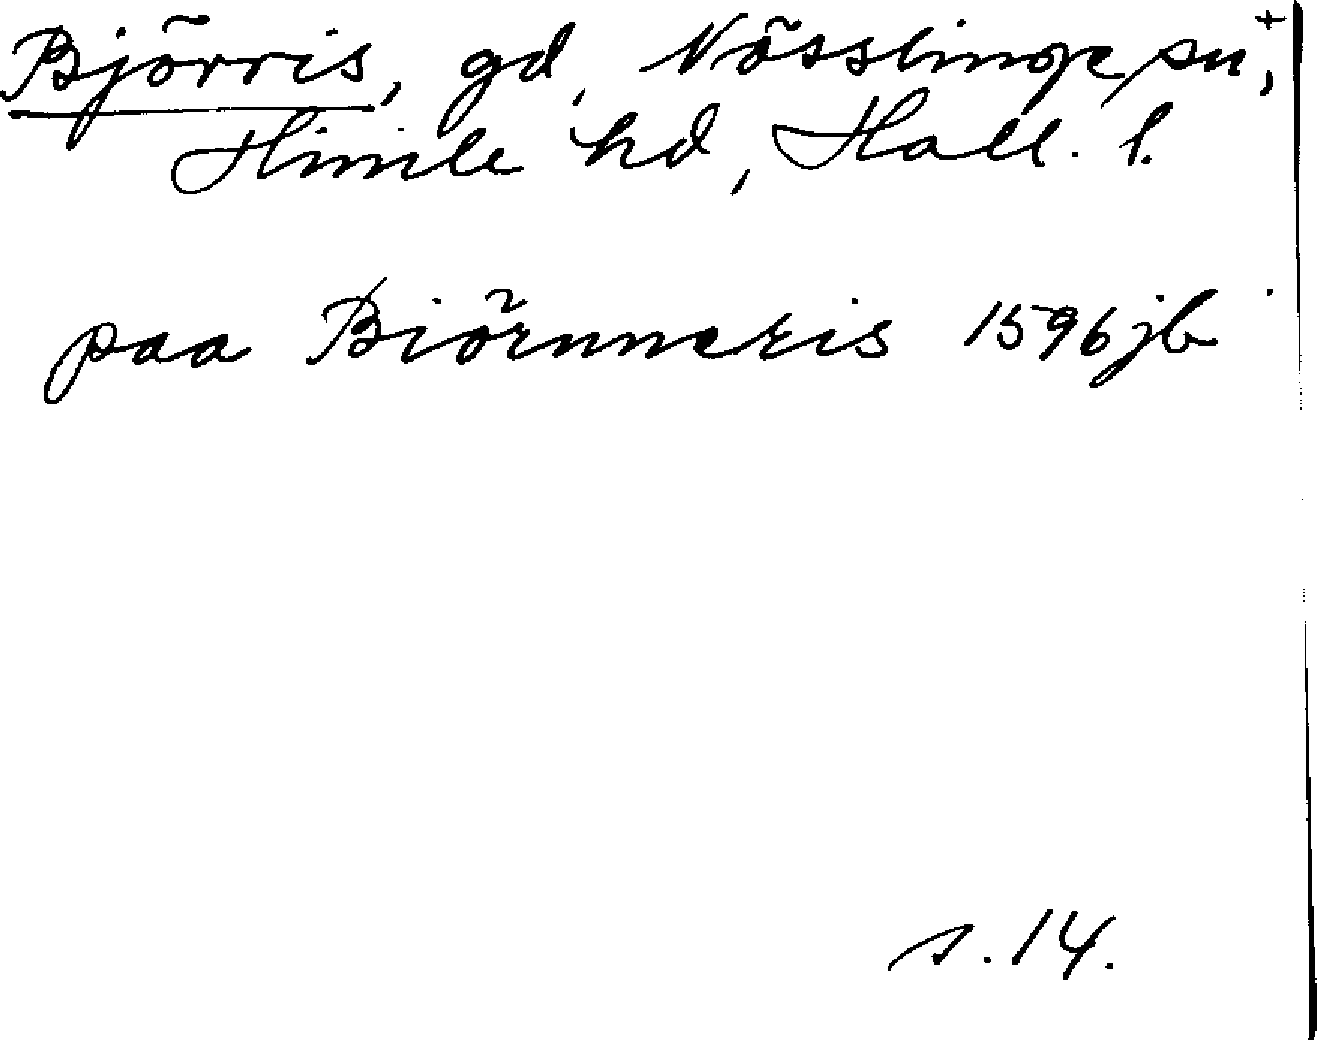 Björris, gd, Nösslinge sn, +
Himle hd, Hall. l.
paa Biörnneris 1596 jb
s. 14.